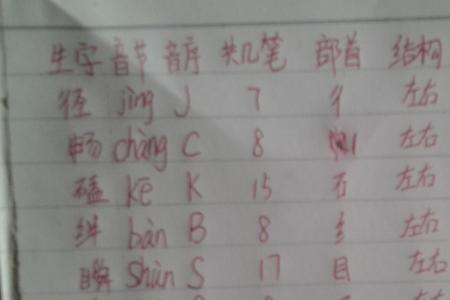 生字 音节 音序 共几笔 部首 结构
径 jìng J 7 彳 左右
畅 chàng C 8 左右
磕 kē K 15 石 左右
绊 bàn B 8 纟 左右
瞬 shùn S 17 目 左右